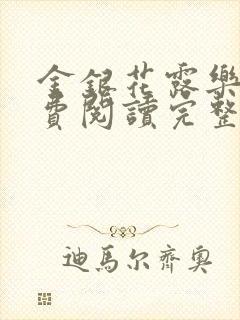 金銀花露樂
費閱讀完整
迪馬尔齊奧